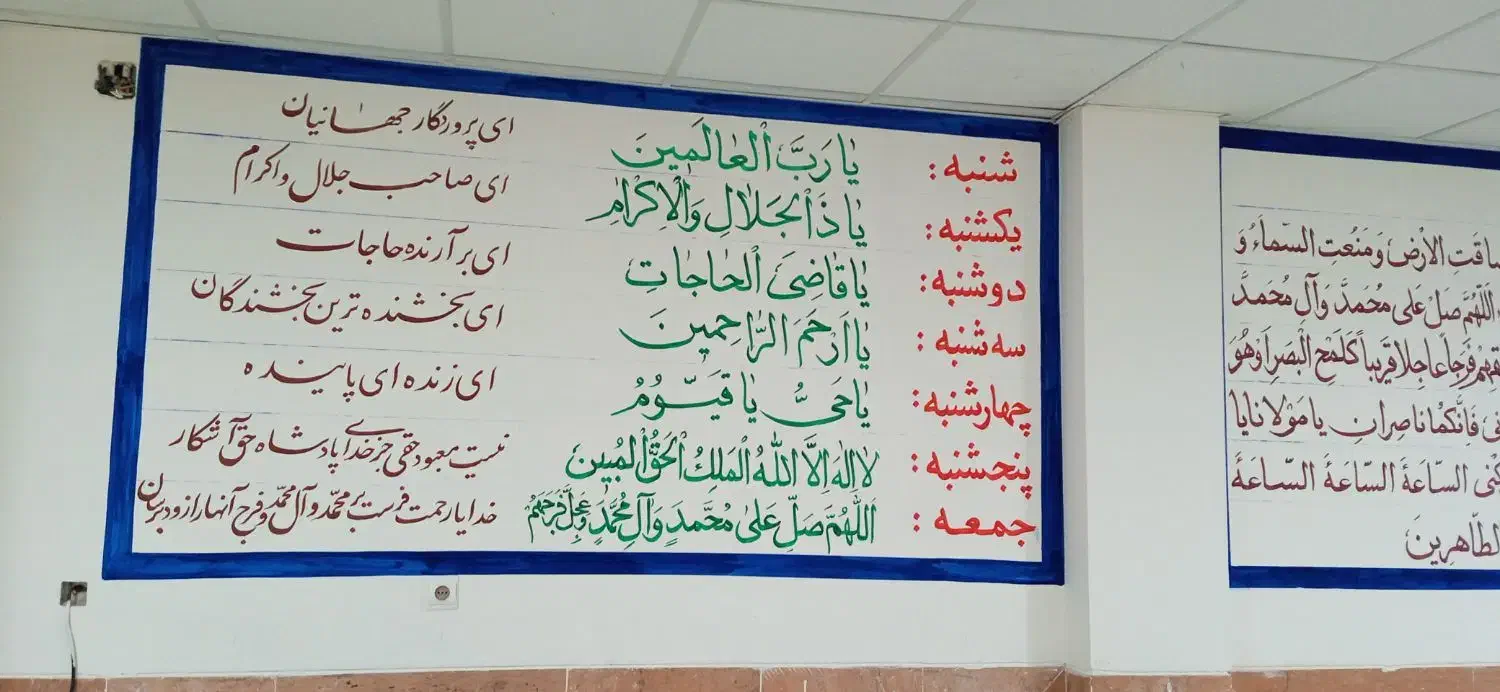 شنبه: یا رَبَّ الْعالَمِینَ ای پروردگار جهانیان
یکشنبه: یا ذَالْجَلالِ وَالْاِکْرامِ ای صاحب جلال و اکرام
دوشنبه: یا قاضِیَ الْحاجاتِ ای برآرنده حاجات
سه شنبه: یا اَرْحَمَ الرّاحِمینَ ای بخشنده ترین بخشندگان
چهارشنبه: یا حَیُّ یا قَیّومُ ای زنده ای پاینده
پنجشنبه: لا اِلهَ اِلَّا اللهُ الْمَلِکُ الْحَقُّ الْمُبین نیست معبود حقی جز خدا پادشاه حق آشکار
جمعه: اَللّهُمَّ صَلِّ عَلی مُحَمَّدٍ وَآلِ مُحَمَّدٍ وَعَجِّلْ فَرَجَهُمْ خدایا رحمت فرست بر محمّد و آل محمّد و فرج آنها را زود برسان
ضاقَتِ الْاَرْضُ وَمُنِعَتِ السَّماءُ وَ
اَللّهُمَّ صَلِّ عَلی مُحَمَّدٍ وَآلِ مُحَمَّدٍ
فَرَجاً عاجِلاً قَریباً کَلَمْحِ الْبَصَرِ اَوْ هُوَ
فَاِنَّکُما ناصِرانِ یا مَوْلانا یا
السّاعَةَ السّاعَةَ السّاعَةَ
الطّاهِرینَ